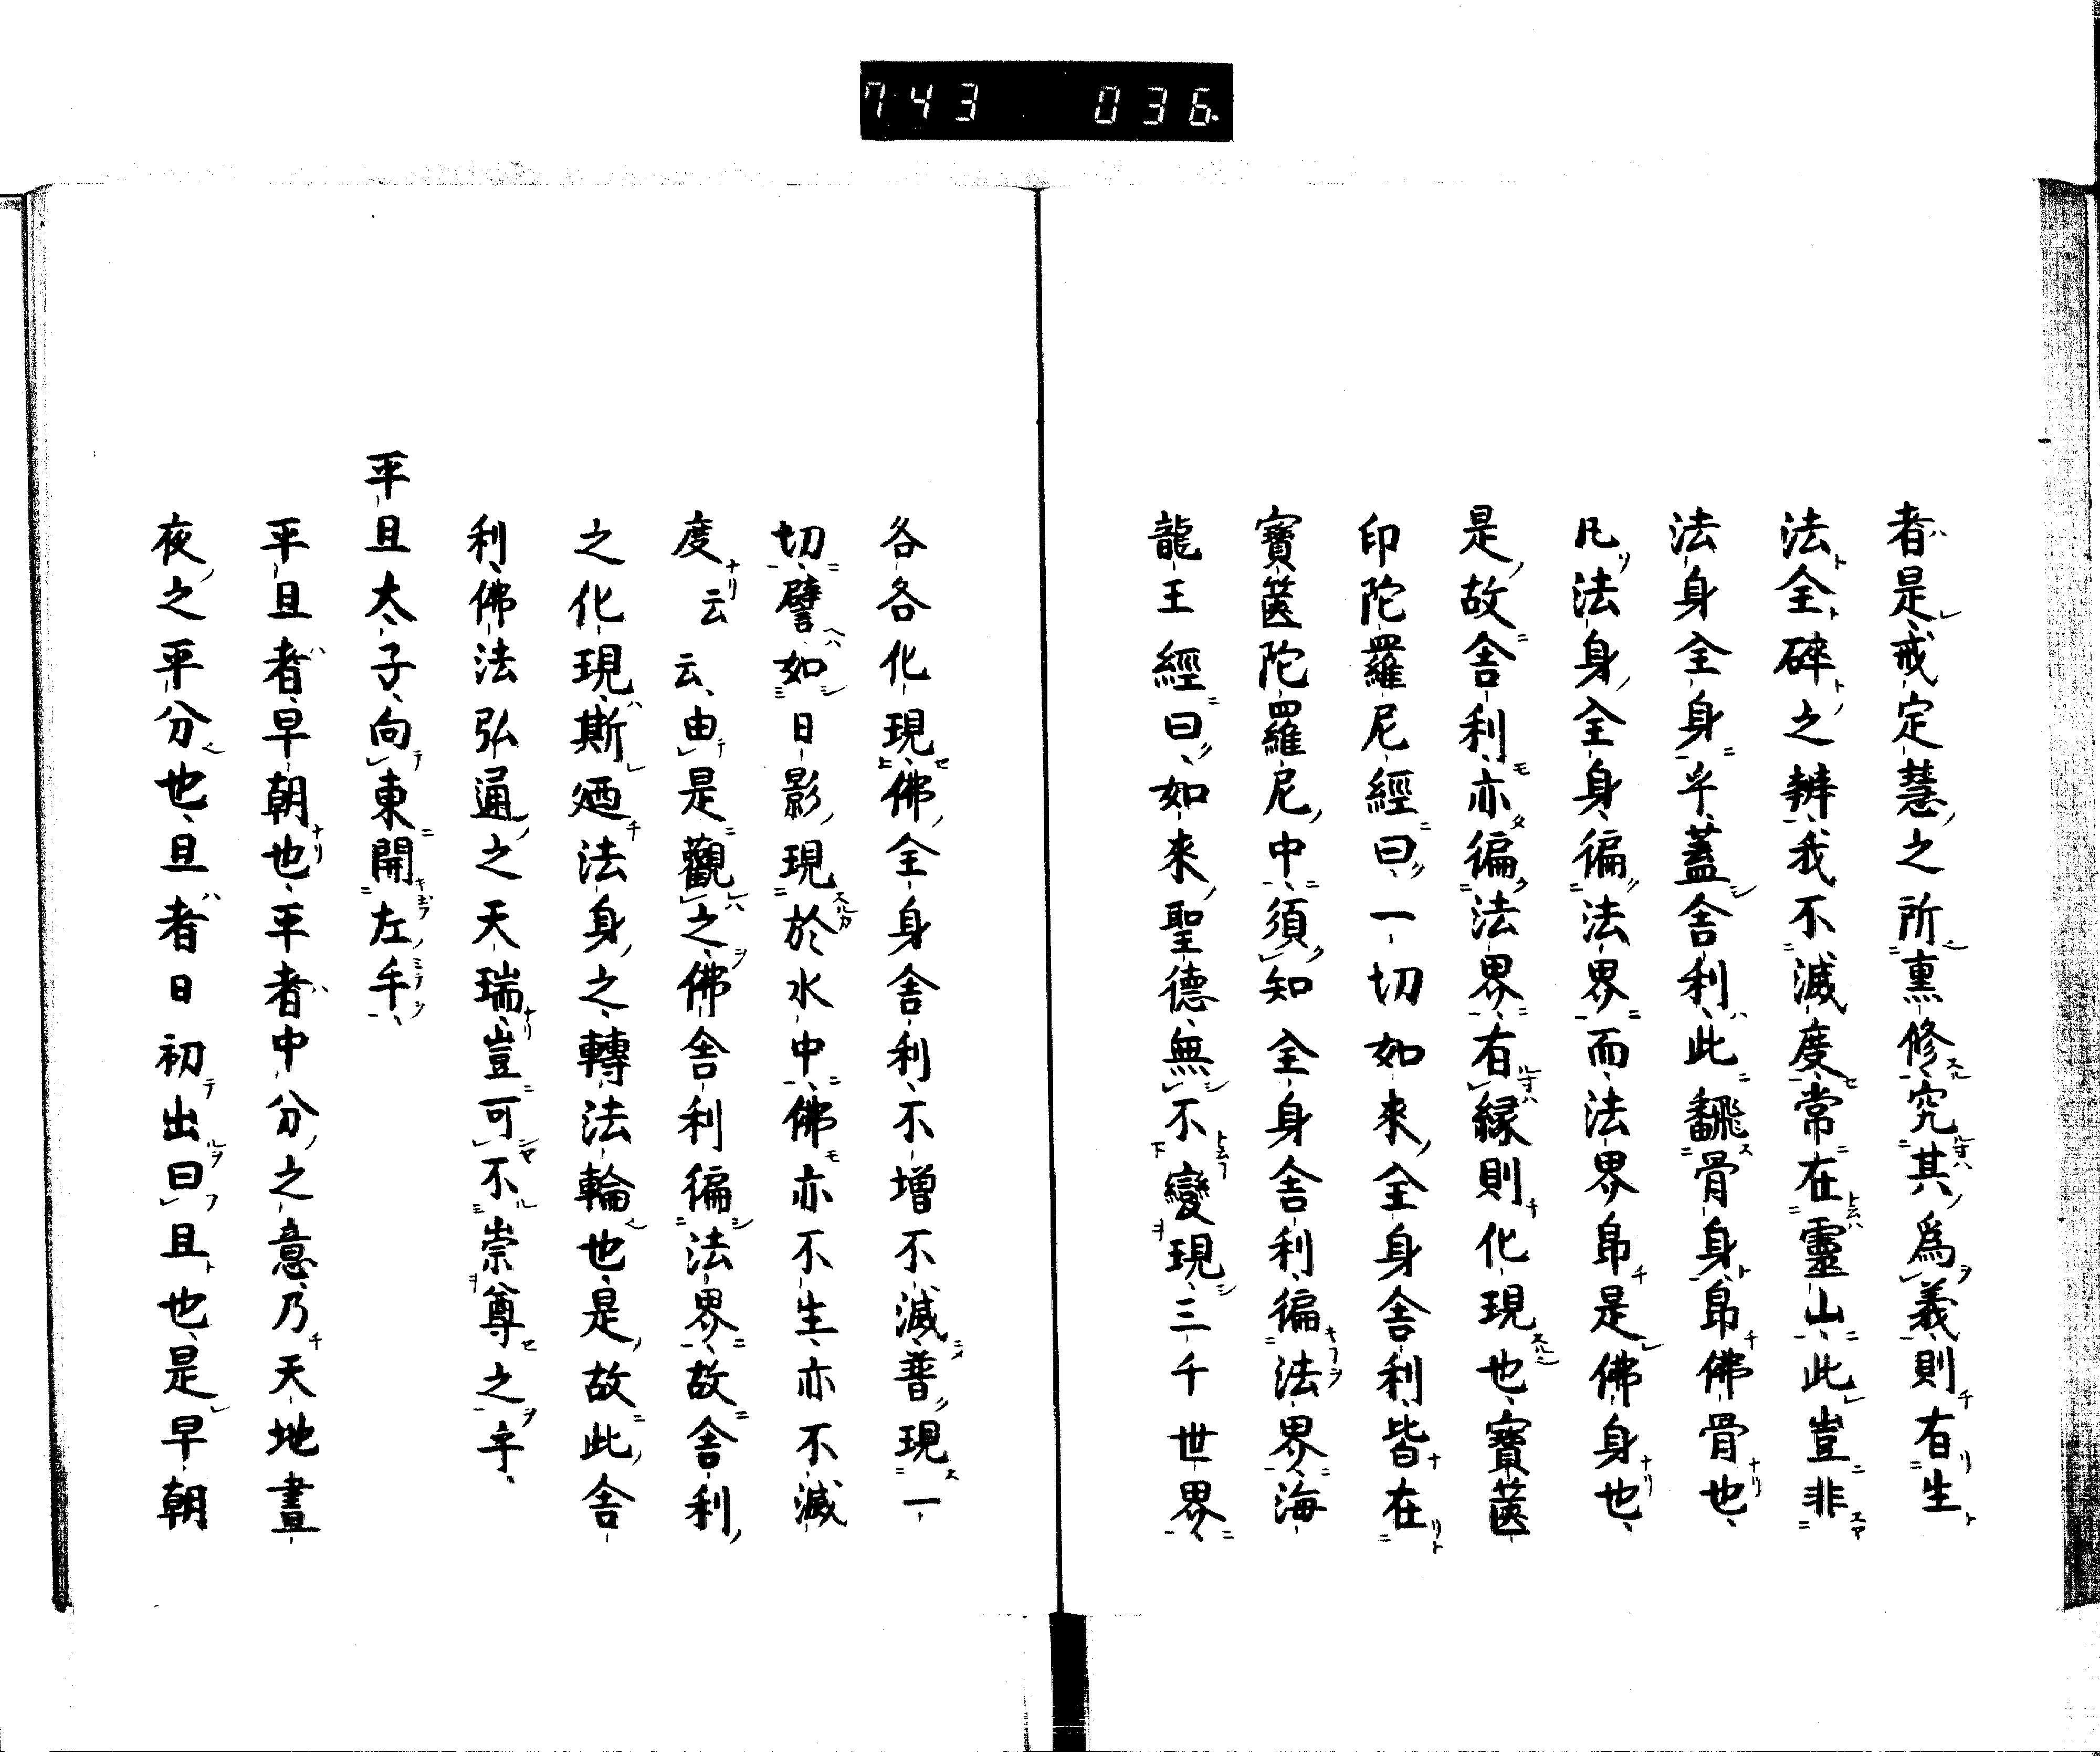 743 036
者是戒定慧之所熏修究其爲義則有生
法全碎之辨我不滅度常在靈山此豈非
法身全身乎蓋舍利此飜骨身帛佛骨也
凡法身全身徧法界而法界帛是佛身也
是故舍利亦徧法界有縁則化現也寶篋
印陀羅尼經曰一切如來全身舍利皆在
寶篋陀羅尼中須知全身舍利徧法界海
龍王經曰如來聖德無不變現三千世界
各各化現佛全身舍利不增不滅普現一
切譬如日影現於水中佛亦不生亦不滅
度云云由是觀之佛舍利徧法界故舍利
之化現斯廼法身之轉法輪也是故此舍
利佛法弘通之天瑞豈可不崇尊之乎
平旦太子向東開左手
平旦者早朝也平者中分之意乃天地晝
夜之平分也旦者日初出曰旦也是早朝